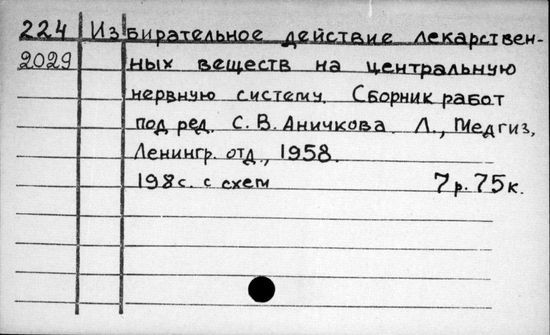 224 Избирательное действие лекарствен-
2029 ных веществ на центральную
нервную систему. Сборник работ
под ред. С. В. Аничкова. Л., Медгиз,
Ленингр. отд., 1958.
198 с. с схем 7 р. 75 к.